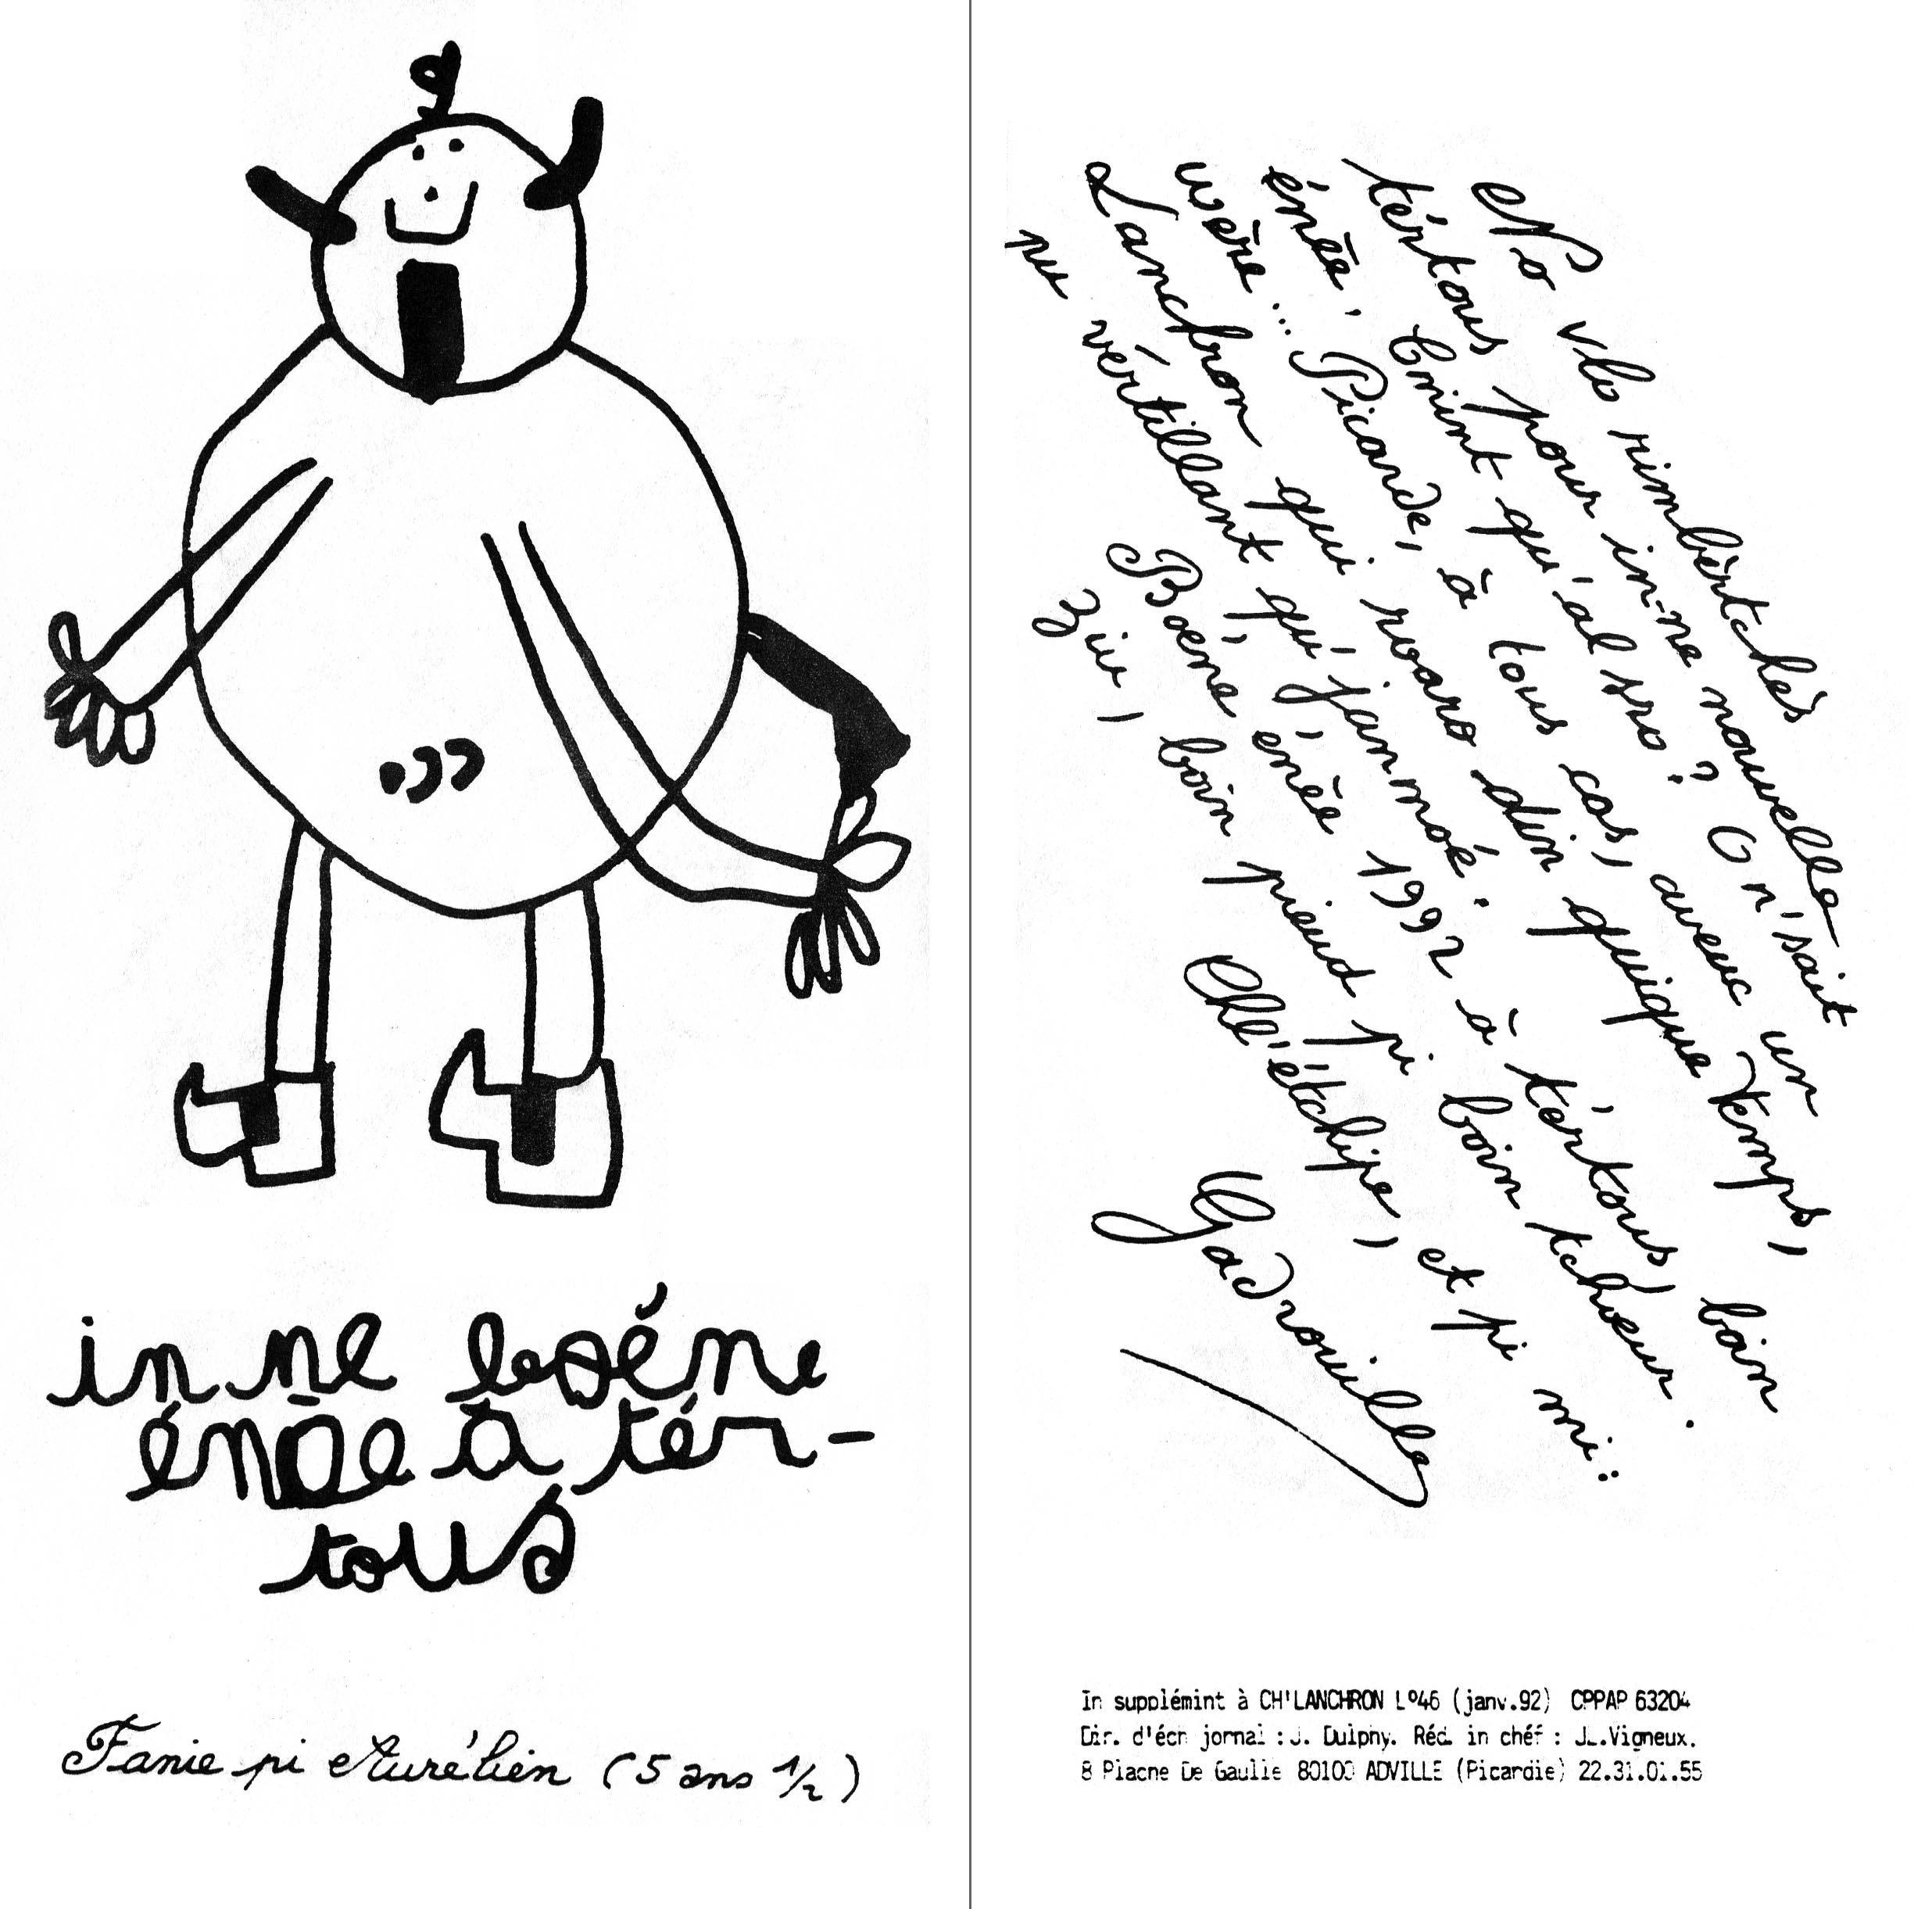 in ne boéne
énée à tér-
tous
Fanie pi Aurélien (5 ans 1/2)
No vlo rimbértchés
tértous pour in-ne nouvelle
énée, Cmint qu'al sro? O n'sait
wère... Picarde, à tous cas, aveuc un
Lanchron qui rvaro din quique temps, boin
pu vértillant qu'janmoé.
Boéne énée 1992 à tértous,
Ziu, boin pieud pi boin tcheur.
Chl'étchipe, et pi mi:
Gadrouille
In supplémint à CH'LANCHRON L°46 (janv.92) CPPAP 63204
Dir. d'éch jornal : J. Dulphy. Réd. in chéf : JL.Vigneux.
8 Plache De Gaulle 80100 ADVILLE (Picardie) 22.31.01.55